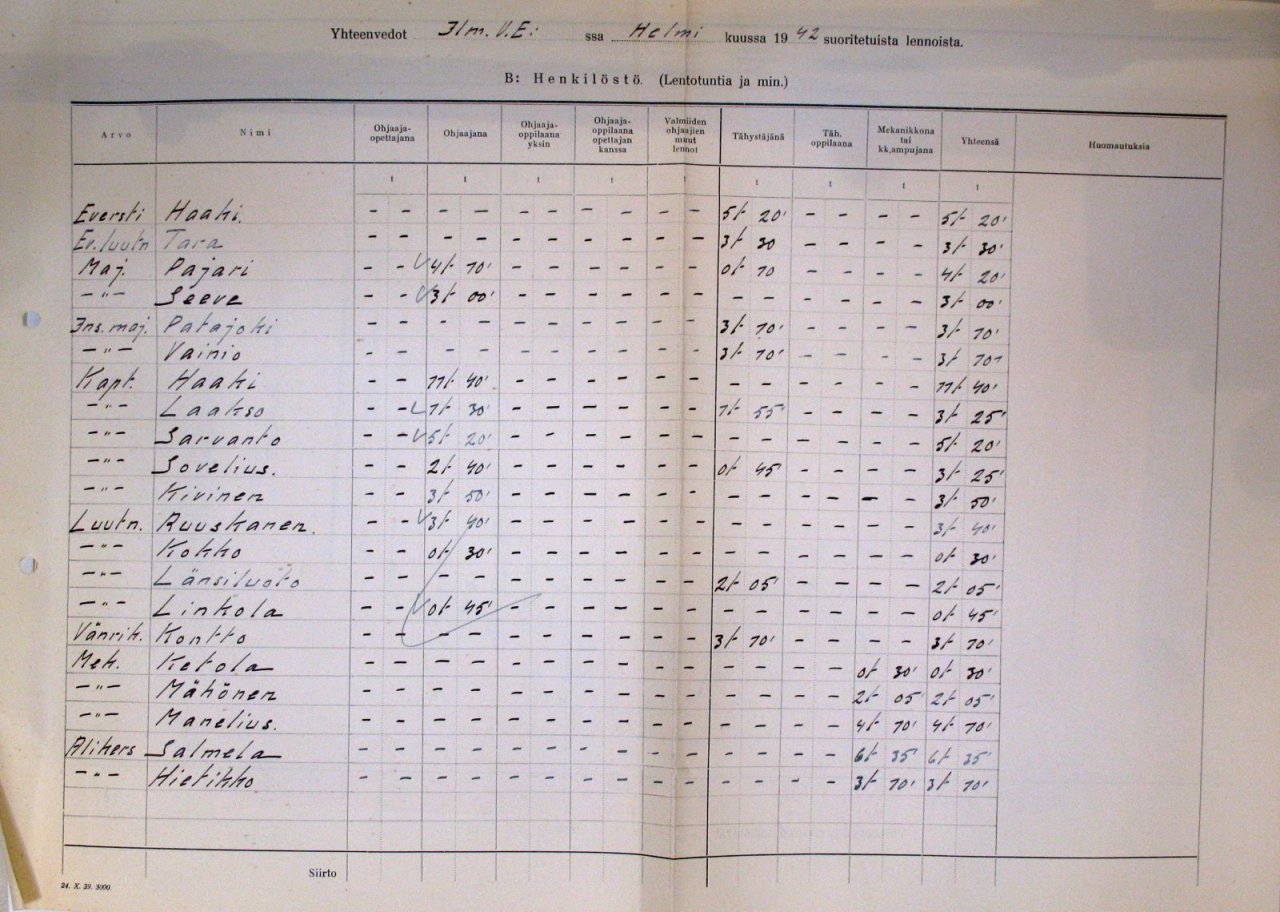 Yhteenvedot Ilm.V.E: ssa Helmi kuussa 19 42 suoritetuista lennoista.
B: Henkilöstö. (Lentotuntia ja min.)
Arvo Nimi Ohjaaja-opettajana Ohjaajana Ohjaaja-oppilaana yksin Ohjaaja-oppilaana opettajan kanssa Valmiiden ohjaajien muut lennot Tähystäjänä Täh. oppilaana Mekanikkona tai kk.ampujana Yhteensä Huomautuksia
t t t t t t t t t
Eversti Haaki. - - - - - - - - - - 5t 20' - - - - 5t 20'
Ev.luutn Tara - - - - - - - - - - 3t 30 - - - - 3t 30'
Maj. Pajari - - √ 4t 10' - - - - - - 0t 10 - - - - 4t 20'
-"- Seeve - - √ 3t 00' - - - - - - - - - - - - 3t 00'
Ins.maj. Patajoki - - - - - - - - - - 3t 10' - - - - 3t 10'
-"- Vainio - - - - - - - - - - 3t 10' - - - - 3t 10'
Kapt. Haaki - - 11t 40' - - - - - - - - - - - - 11t 40'
-"- Laakso - - √ 1t 30' - - - - - - 1t 55' - - - - 3t 25'
-"- Sarvanto - - √ 5t 20' - - - - - - - - - - - - 5t 20'
-"- Sovelius. - - 2t 40' - - - - - - 0t 45' - - - - 3t 25'
-"- Kivinen - - 3t 50' - - - - - - - - - - - - 3t 50'
Luutn. Ruuskanen. - - √ 3t 40' - - - - - - - - - - - - 3t 40'
-"- Kokko - - 0t 30' - - - - - - - - - - - - 0t 30'
-"- Länsiluoto - - - - - - - - - - 2t 05' - - - - 2t 05'
-"- Linkola - - √ 0t 45' - - - - - - - - - - - - 0t 45'
Vänrik. Kontto - - - - - - - - - - 3t 10' - - - - 3t 10'
Mek. Ketola - - - - - - - - - - - - - - 0t 30' 0t 30'
-"- Mähönen - - - - - - - - - - - - - - 2t 05' 2t 05'
-"- Manelius. - - - - - - - - - - - - - - 4t 10' 4t 10'
Alikers Salmela - - - - - - - - - - - - - - 6t 35' 6t 35'
-"- Hietikko - - - - - - - - - - - - - - 3t 10' 3t 10'
Siirto
24. X. 39. 3000